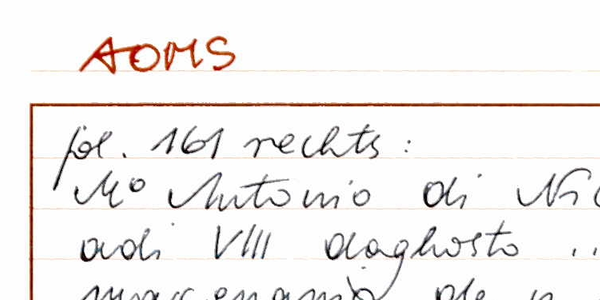 AOMS
fol. 161 rechts:
Mo Antonio di Nic
adi VIII daghosto ..